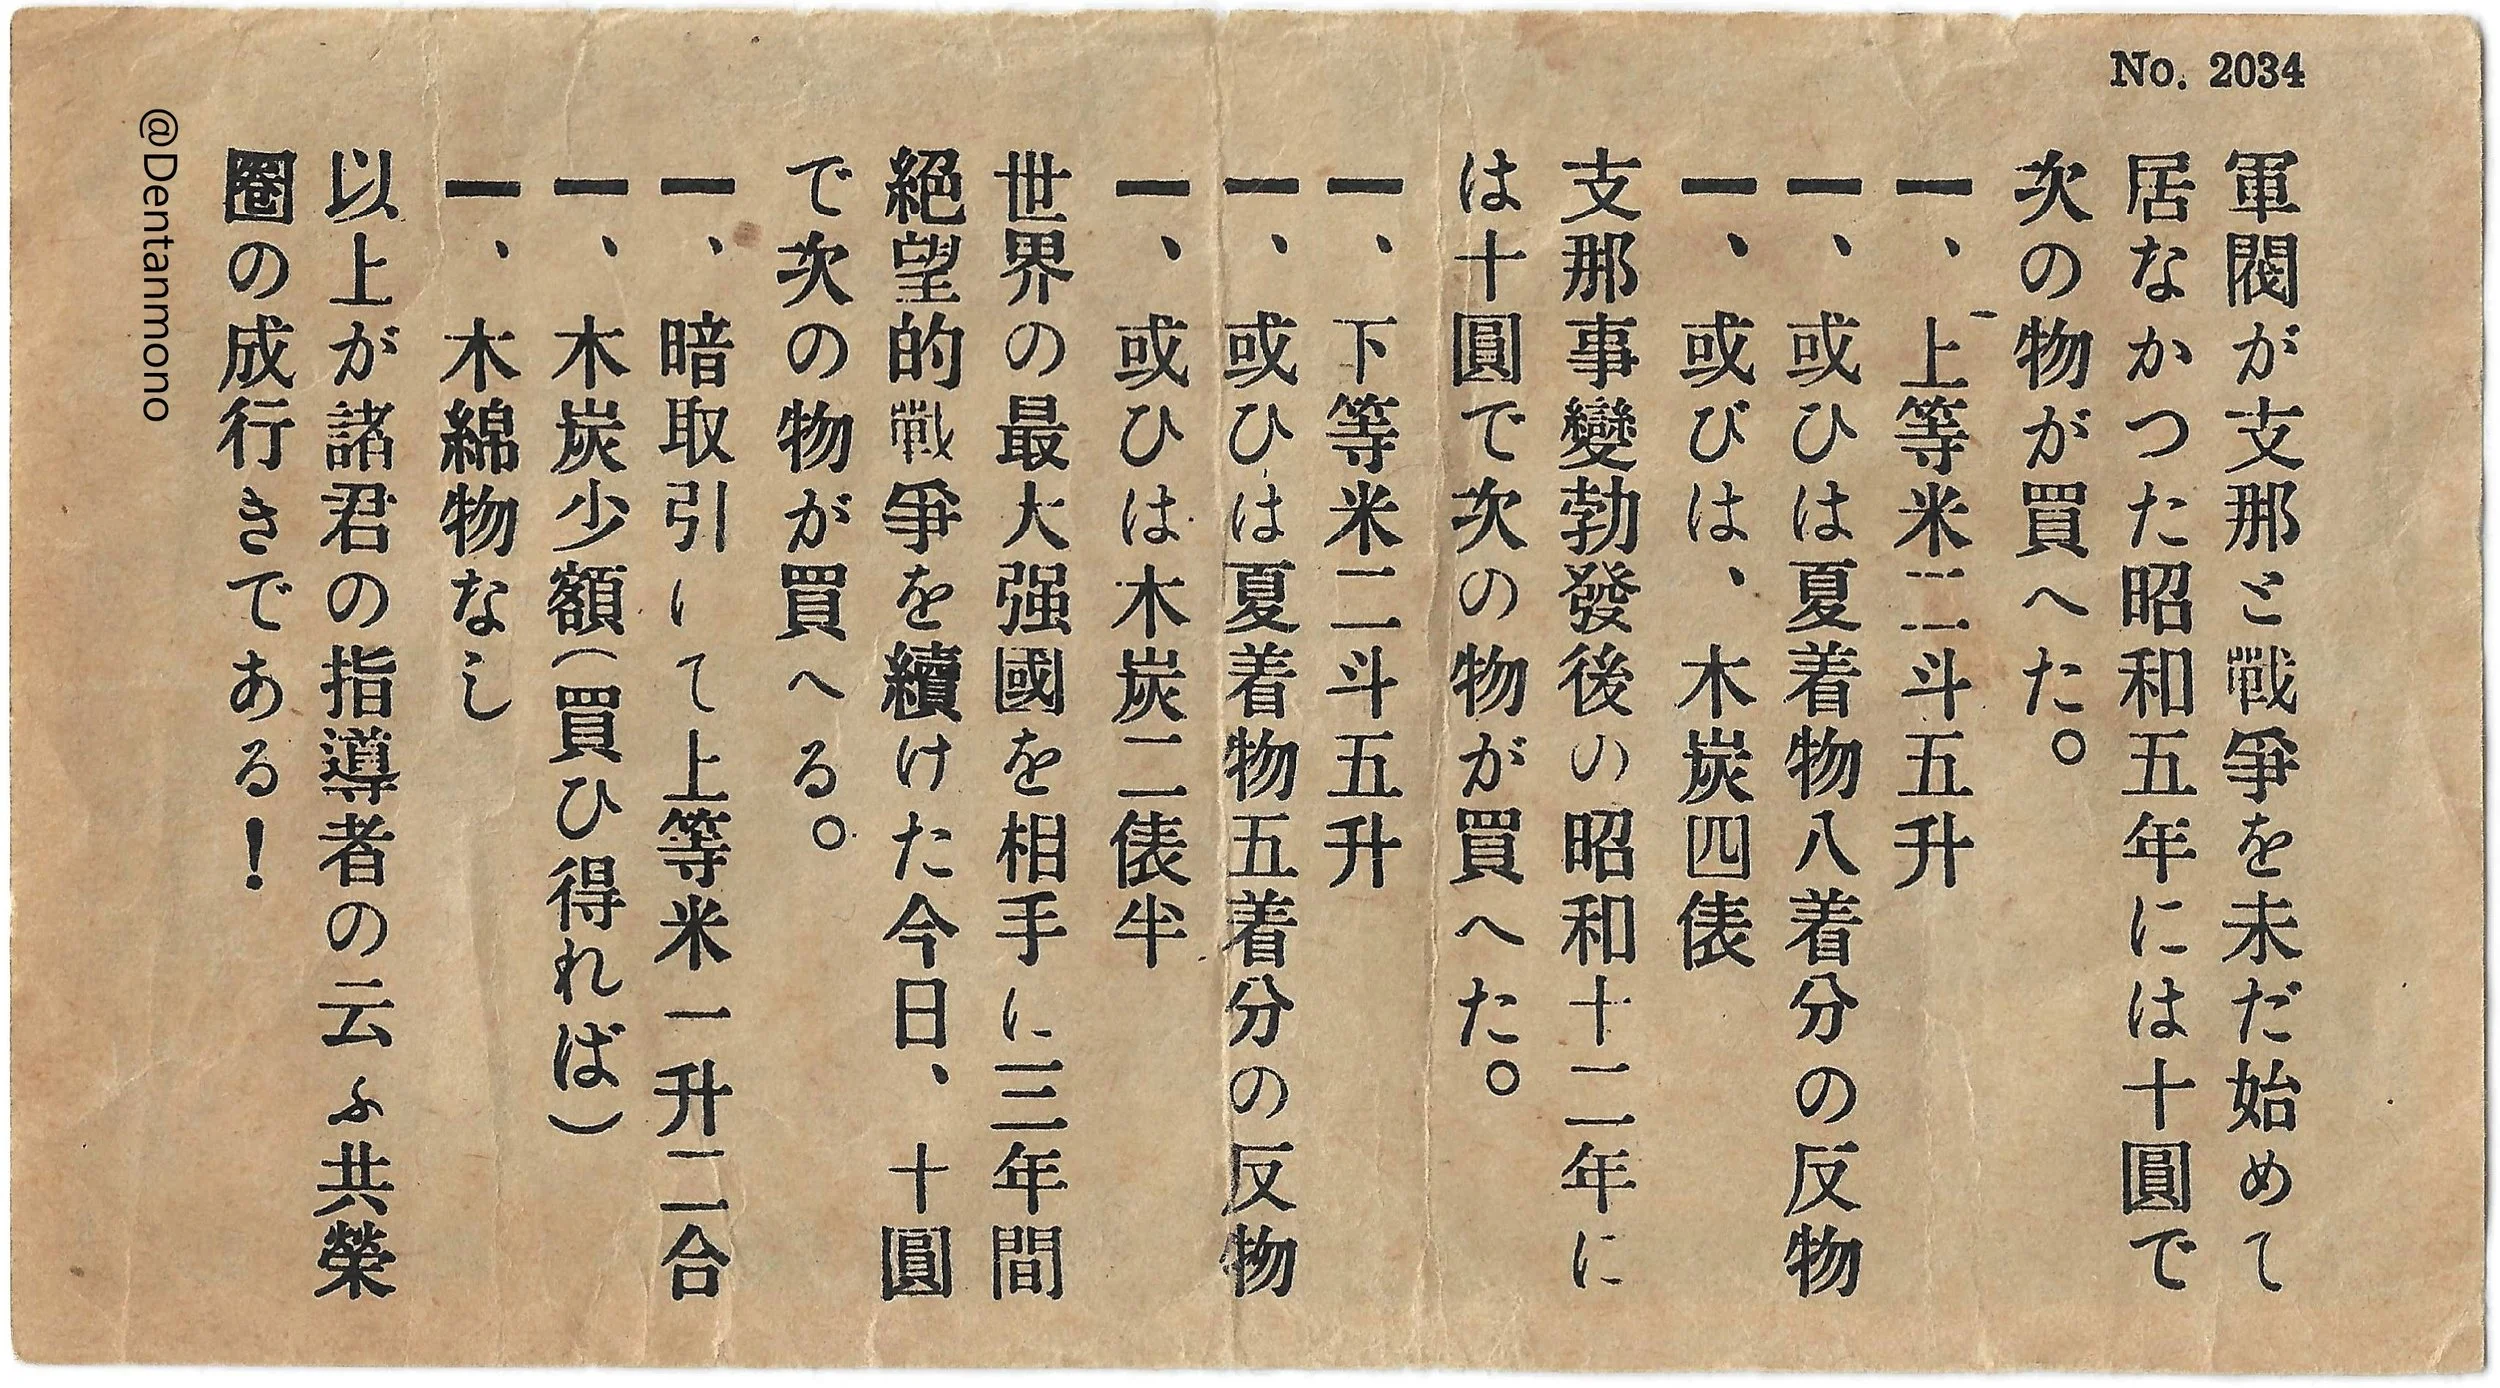 No. 2034
軍閥が支那と戰爭を未だ始めて
居なかつた昭和五年には十圓で
次の物が買へた。
一、上等米二斗五升
一、或ひは夏着物八着分の反物
一、或びは、木炭四俵
支那事變勃發後の昭和十二年に
は十圓で次の物が買へた。
一、下等米二斗五升
一、或ひは夏着物五着分の反物
一、或ひは木炭二俵半
世界の最大强國を相手に三年間
絕望的戰爭を續けた今日、十圓
で次の物が買へる。
一、暗取引にて上等米一升二合
一、木炭少額(買ひ得れば)
一、木綿物なし
以上が諸君の指導者の云ふ共榮
圈の成行きである!
@Dentanmono